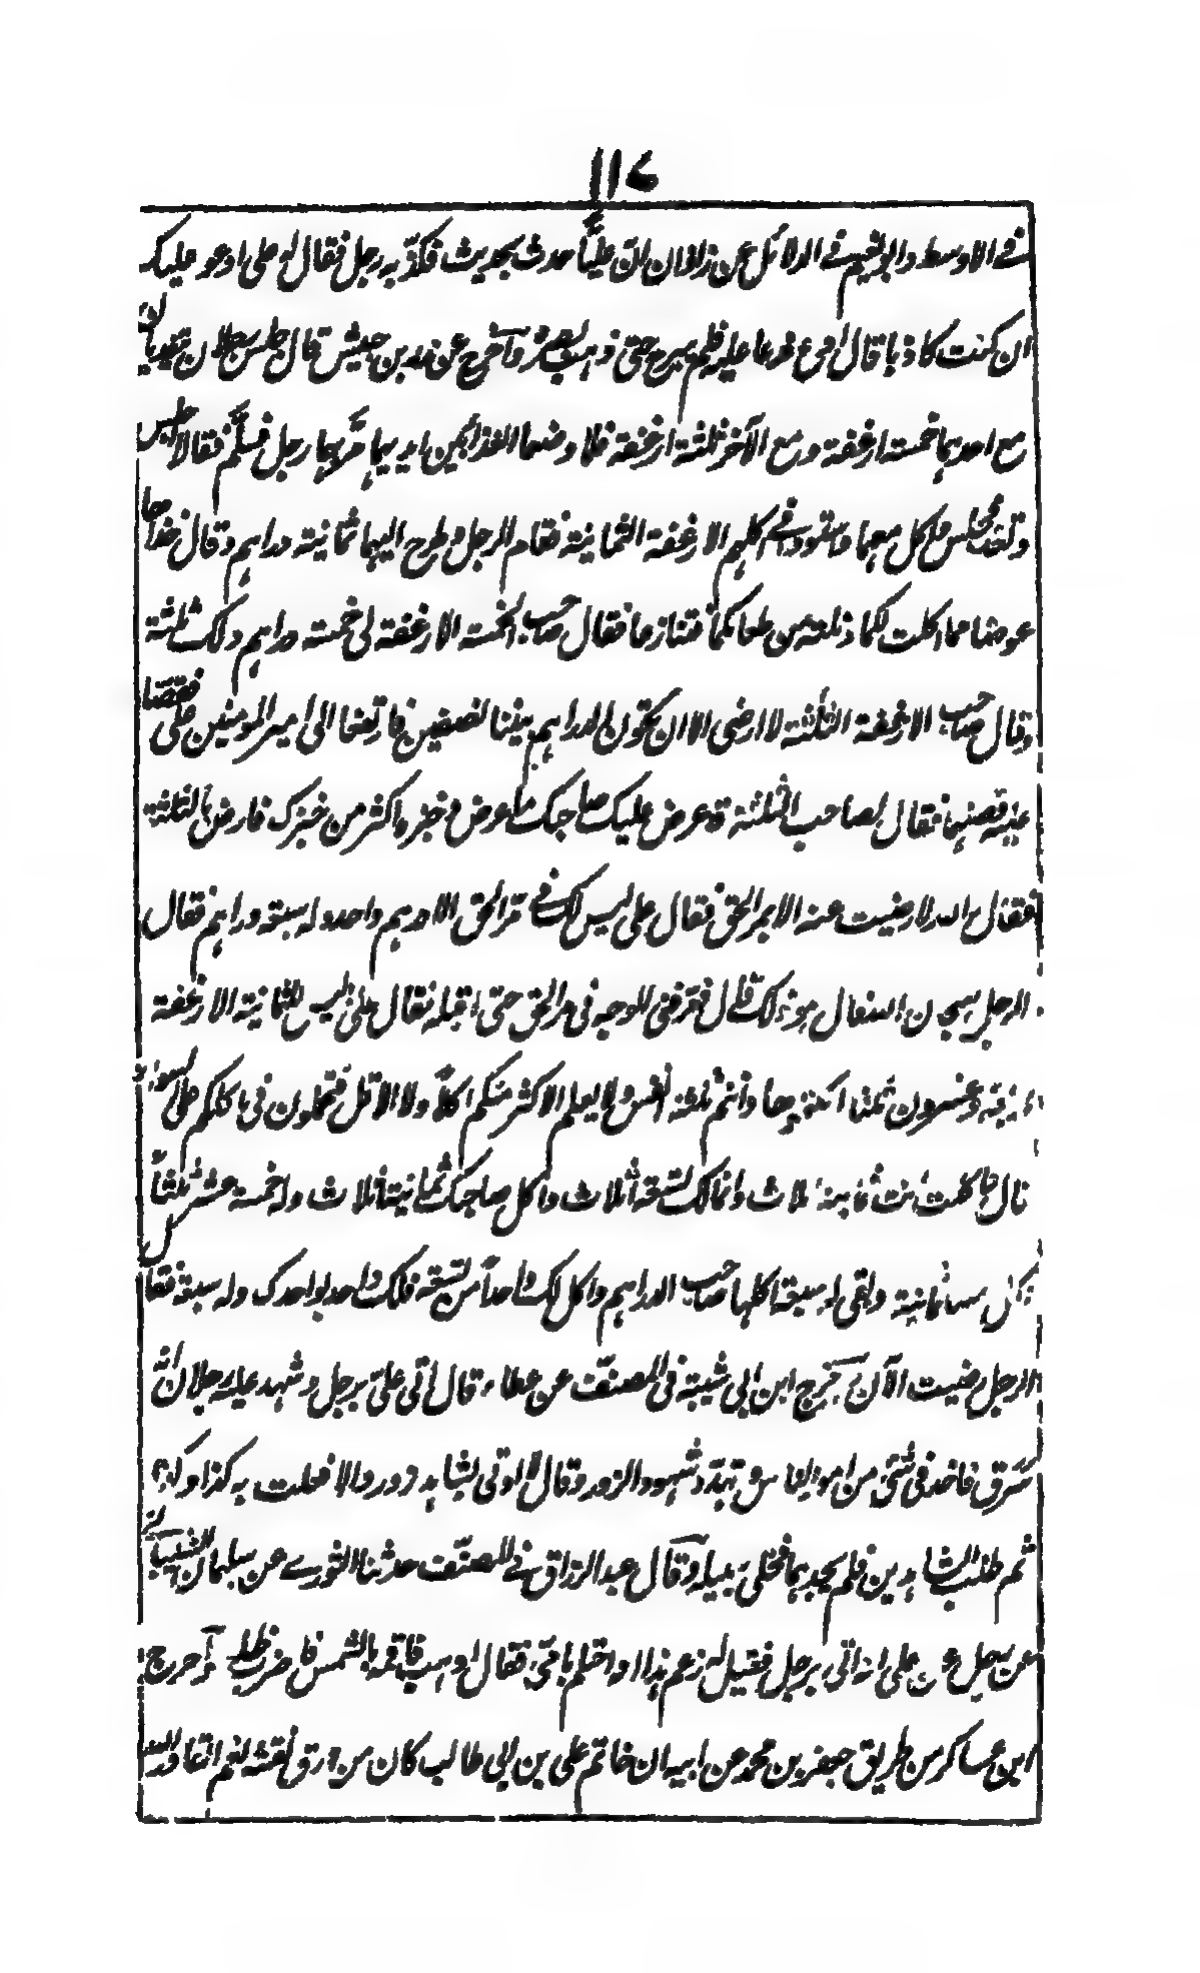 ١١٧
في الاوسط وابو نعيم في الدلائل عن زاذان ان عليًّا حدث بحديث فكذّبه رجل فقال له علي ادعو عليك
ان كنت كاذبا قال ادع فدعا عليه فلم يبرح حتى ذهب بصره وآخرج عن زر بن حبيش قال جلس رجلان يتغديان
مع احدهما خمسة ارغفة ومع الآخر ثلثة ارغفة فلما وضعا الغذا بين ايديهما مرّ بهما رجل فسلّم فقالا اجلس
وتغد فجلس واكل معهما واستووا في اكلهم الارغفة الثمانية فقام الرجل وطرح اليهما ثمانية دراهم وقال خذاها
عوضا مما اكلت لكما ونلته من طعامكما فتنازعا فقال صاحب الخمسة الارغفة لي خمسة دراهم ولك ثلثة
وقال صاحب الارغفة الثلثة لا ارضى الا ان تكون الدراهم بيننا نصفين فارتفعا الى امير المومنين علي فقصّا
عليه قصتهما فقال لصاحب الثلثة قد عرض عليك صاحبك ما عرض وخبزه اكثر من خبزك فارض بالثلثة
فقال والله لا رضيت عنه الا بمر الحق فقال علي ليس لك في مر الحق الا درهم واحد وله سبعة دراهم فقال
الرجل سبحان الله قال هو ذلك قال فعرفني الوجه في مر الحق حتى اقبله فقال علي اليس للثمانية الارغفة
اربعة وعشرون ثلثا اكلتموها وانتم ثلثة انفس ولا يعلم الاكثر منكم اكلًا ولا الاقل فتحملون في اكلكم على السواء
قال فاكلت انت ثمانية اثلاث وانما لك تسعة اثلاث واكل صاحبك ثمانية اثلاث وله خمسة عشر ثلثًا
اكل منها ثمانية وبقي له سبعة اكلها صاحب الدراهم واكل لك واحدًا من تسعة فلك واحد بواحدك وله سبعة فقال
الرجل رضيت الآن وآخرج ابن ابي شيبة في المصنّف عن عطاء قال اتي علي برجل وشهد عليه رجلان انه
سرق فاخذ في شئ من امور الناس وتهدّد شهود الزور وقال لا اوتى بشاهد زور الا فعلت به كذا وكذا
ثم طلب الشاهدين فلم يجدهما فخلى سبيله وقال عبد الرزاق في المصنّف حدثنا الثوري عن سليمان الشيباني
عن رجل عن علي انه اتي برجل فقيل له زعم هذا انه احتلم بامي فقال اذهب فاقمه بالشمس فاضرب ظله وآخرج
ابن عساكر من طريق جعفر بن محمد عن ابيه ان خاتم علي بن ابي طالب كان من ورق نقشه نعم القادر الله